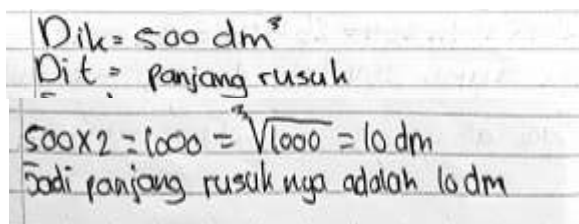 Dik = 500 dm³
Dit = panjang rusuk
500 x 2 = 1000 = ³√1000 = 10 dm
Jadi panjang rusuk nya adalah 10 dm